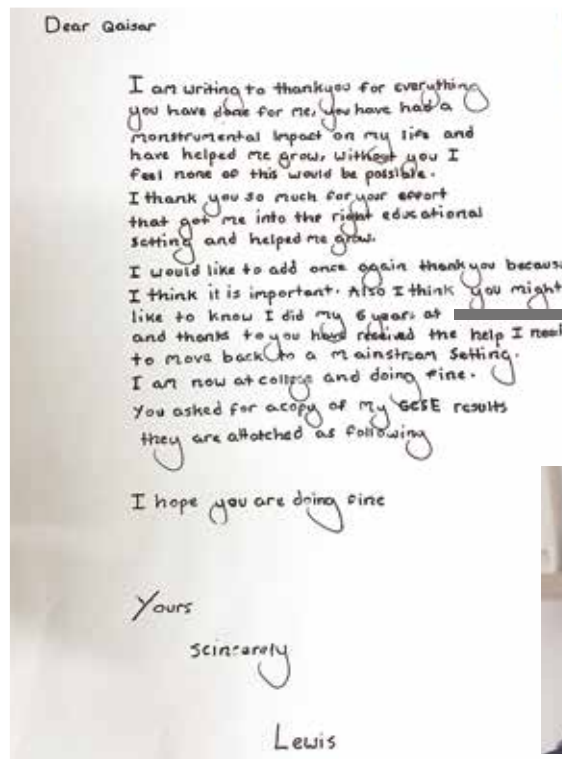 Dear Qaisar
I am writing to thankyou for everything
you have done for me, you have had a
monstrumental Impact on my life and
have helped me grow, without you I
feel none of this would be possible.
I thank you so much for your effort
that got me into the right educational
setting and helped me grow.
I would like to add once again thankyou because
I think it is important. Also I think you might
like to know I did my 6 years at
and thanks to you have received the help I need
to move back to a mainstream setting.
I am now at college and doing fine.
You asked for a copy of my GCSE results
they are attatched as following
I hope you are doing fine
Yours
scincerely
Lewis